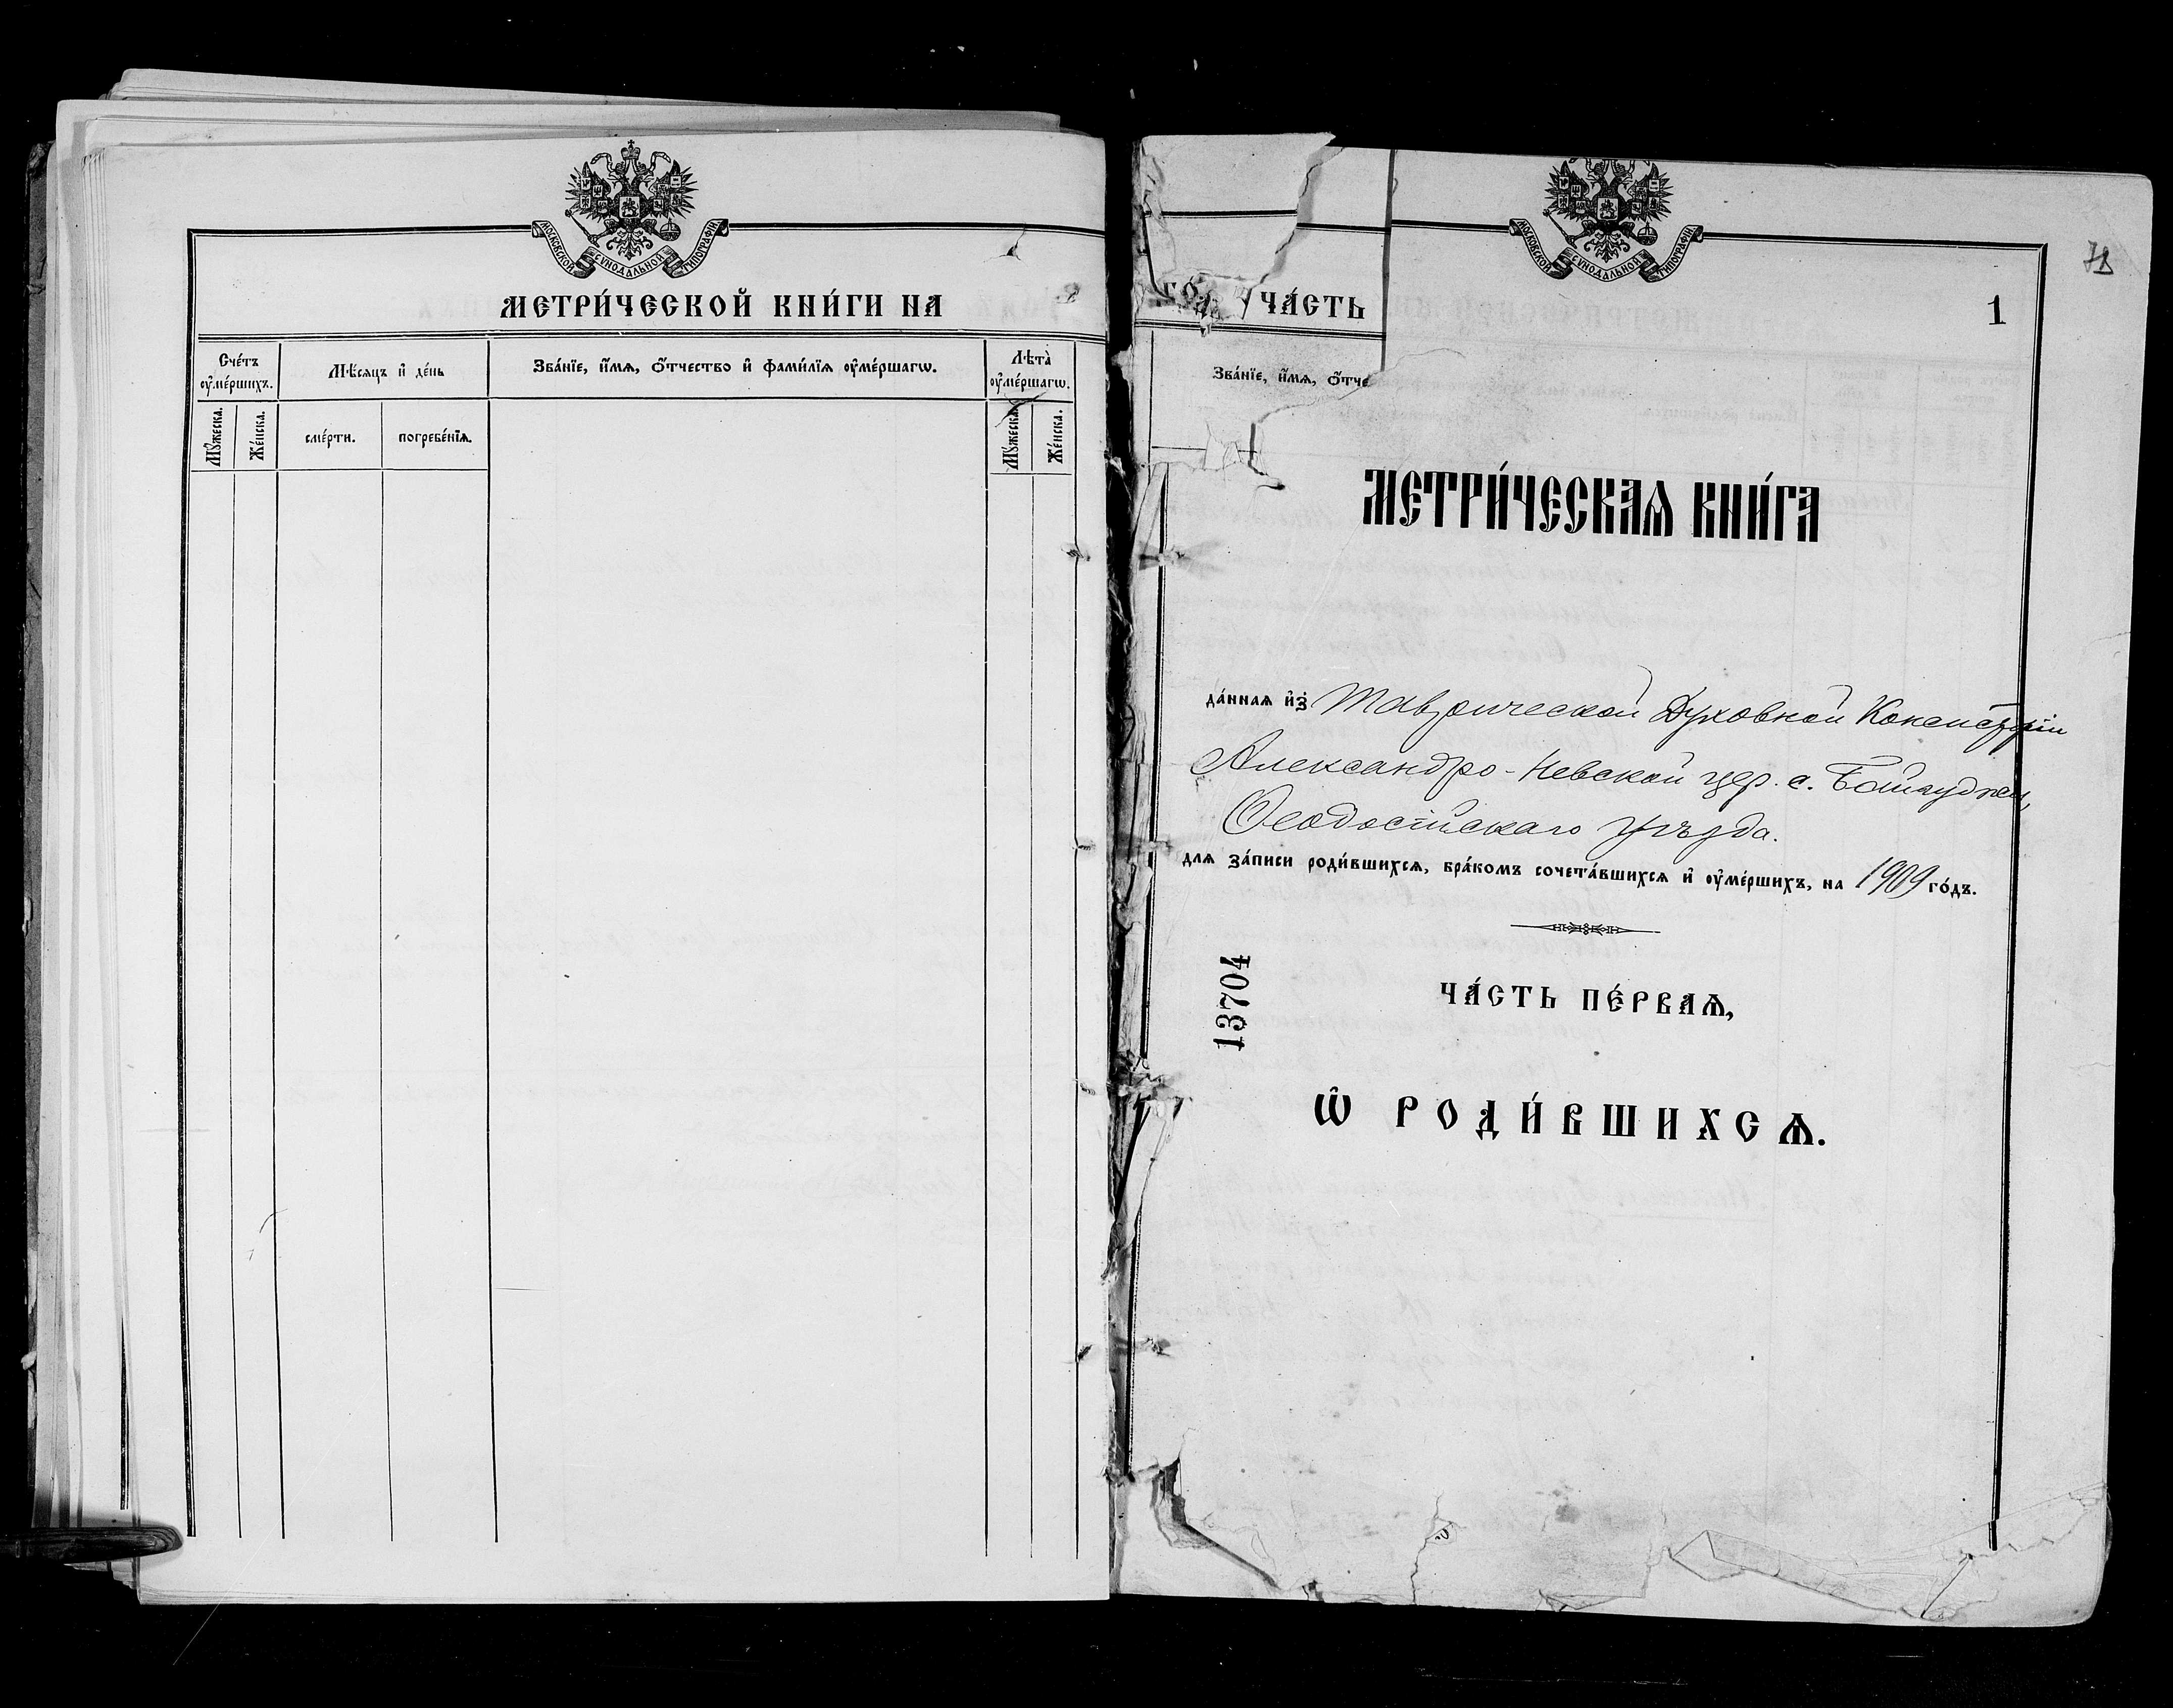 МОСКОВСКОЙ СѴНОДАЛЬНОЙ ТИПОГРАФІИ
МЕТРИ́ЧЕСКОЙ КНИ́ГИ НА
Сче́тъ ᲂу҆ме́ршихъ.
Мѣ́сяцъ и҆ де́нь
Зва́нїе, и҆́мѧ, ѻ҆́тчество и҆ фами́лїѧ ᲂу҆ме́ршагѡ.
Лѣ́та ᲂу҆ме́ршагѡ.
Мꙋ́жеска.
Же́нска.
сме́рти.
погребе́нїѧ.
Мꙋ́жеска.
Же́нска.
ЧА́СТЬ
Зва́нїе, и҆́мѧ, ѻ҆́тче
МОСКОВСКОЙ СѴНОДАЛЬНОЙ ТИПОГРАФІИ
78
1
МЕТРИ́ЧЕСКАѦ КНИ́ГА
да́ннаѧ и҆з̾ Таврической Духовной Консисторіи
Александро-Невской цер. с.
Ѳеодосійскаго уѣзда.
длѧ за́писи роди́вшихсѧ, бра́комъ сочета́вшихсѧ и҆ ᲂу҆ме́ршихъ, на 1909 го́дъ.
13704
ЧА́СТЬ ПЕ́РВАѦ,
Ѡ҆ РОДИ́ВШИХСѦ.